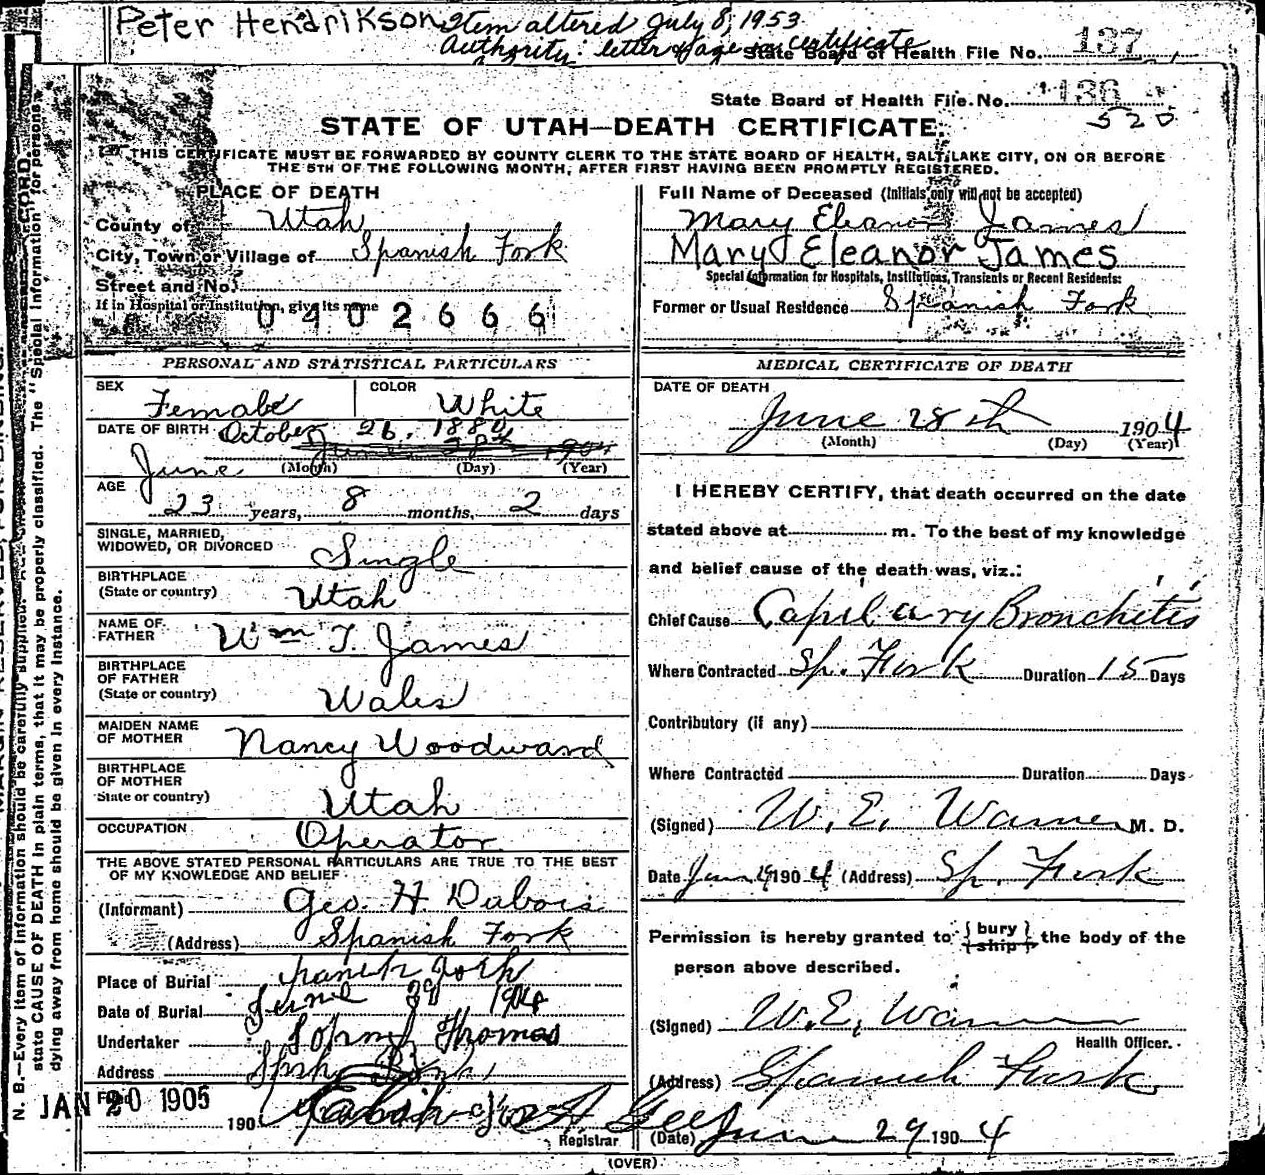 Peter Hendrikson Item altered July 8, 1953
Authority: letter & age in certificate
State Board of Health File No. 137
State Board of Health File No. 136
520
STATE OF UTAH—DEATH CERTIFICATE.
THIS CERTIFICATE MUST BE FORWARDED BY COUNTY CLERK TO THE STATE BOARD OF HEALTH, SALT LAKE CITY, ON OR BEFORE
THE 5TH OF THE FOLLOWING MONTH, AFTER FIRST HAVING BEEN PROMPTLY REGISTERED.
PLACE OF DEATH
County of Utah
City, Town or Village of Spanish Fork
Street and No.
If in Hospital or Institution, give its name
0402666
Full Name of Deceased (Initials only will not be accepted)
Mary Eleanor James
Mary Eleanor James
Special Information for Hospitals, Institutions, Transients or Recent Residents:
Former or Usual Residence Spanish Fork
PERSONAL AND STATISTICAL PARTICULARS
SEX Female COLOR White
DATE OF BIRTH October 26, 1880
June 28th 1904
June (Month) (Day) (Year)
AGE
23 years, 8 months, 2 days
SINGLE, MARRIED,
WIDOWED, OR DIVORCED Single
BIRTHPLACE
(State or country) Utah
NAME OF
FATHER Wm T. James
BIRTHPLACE
OF FATHER
(State or country) Wales
MAIDEN NAME
OF MOTHER Nancy Woodward
BIRTHPLACE
OF MOTHER
State or country) Utah
OCCUPATION Operator
THE ABOVE STATED PERSONAL PARTICULARS ARE TRUE TO THE BEST
OF MY KNOWLEDGE AND BELIEF
(Informant) Geo. H. Dubois
(Address) Spanish Fork
Place of Burial Spanish Fork
Date of Burial June 29 1904
Undertaker Thomas
Address
Filed
JAN 20 1905
190
Registrar
MEDICAL CERTIFICATE OF DEATH
DATE OF DEATH
June 28th 1904
(Month) (Day) (Year)
I HEREBY CERTIFY, that death occurred on the date
stated above at m. To the best of my knowledge
and belief cause of the death was, viz.:
Chief Cause Capilary Bronchitis
Where Contracted Sp. Fork Duration 15 Days
Contributory (if any)
Where Contracted Duration Days
(Signed) W. E. Warner M. D.
Date June 29 1904 (Address) Sp. Fork
Permission is hereby granted to { bury / ship } the body of the
person above described.
(Signed) W. E. Warner
Health Officer.
(Address) Spanish Fork
(Date) June 29 1904
(OVER)
N. B.—Every item of information should be carefully supplied.
state CAUSE OF DEATH in plain terms, that it may be properly classified. The "Special Information" for persons
dying away from home should be given in every instance.